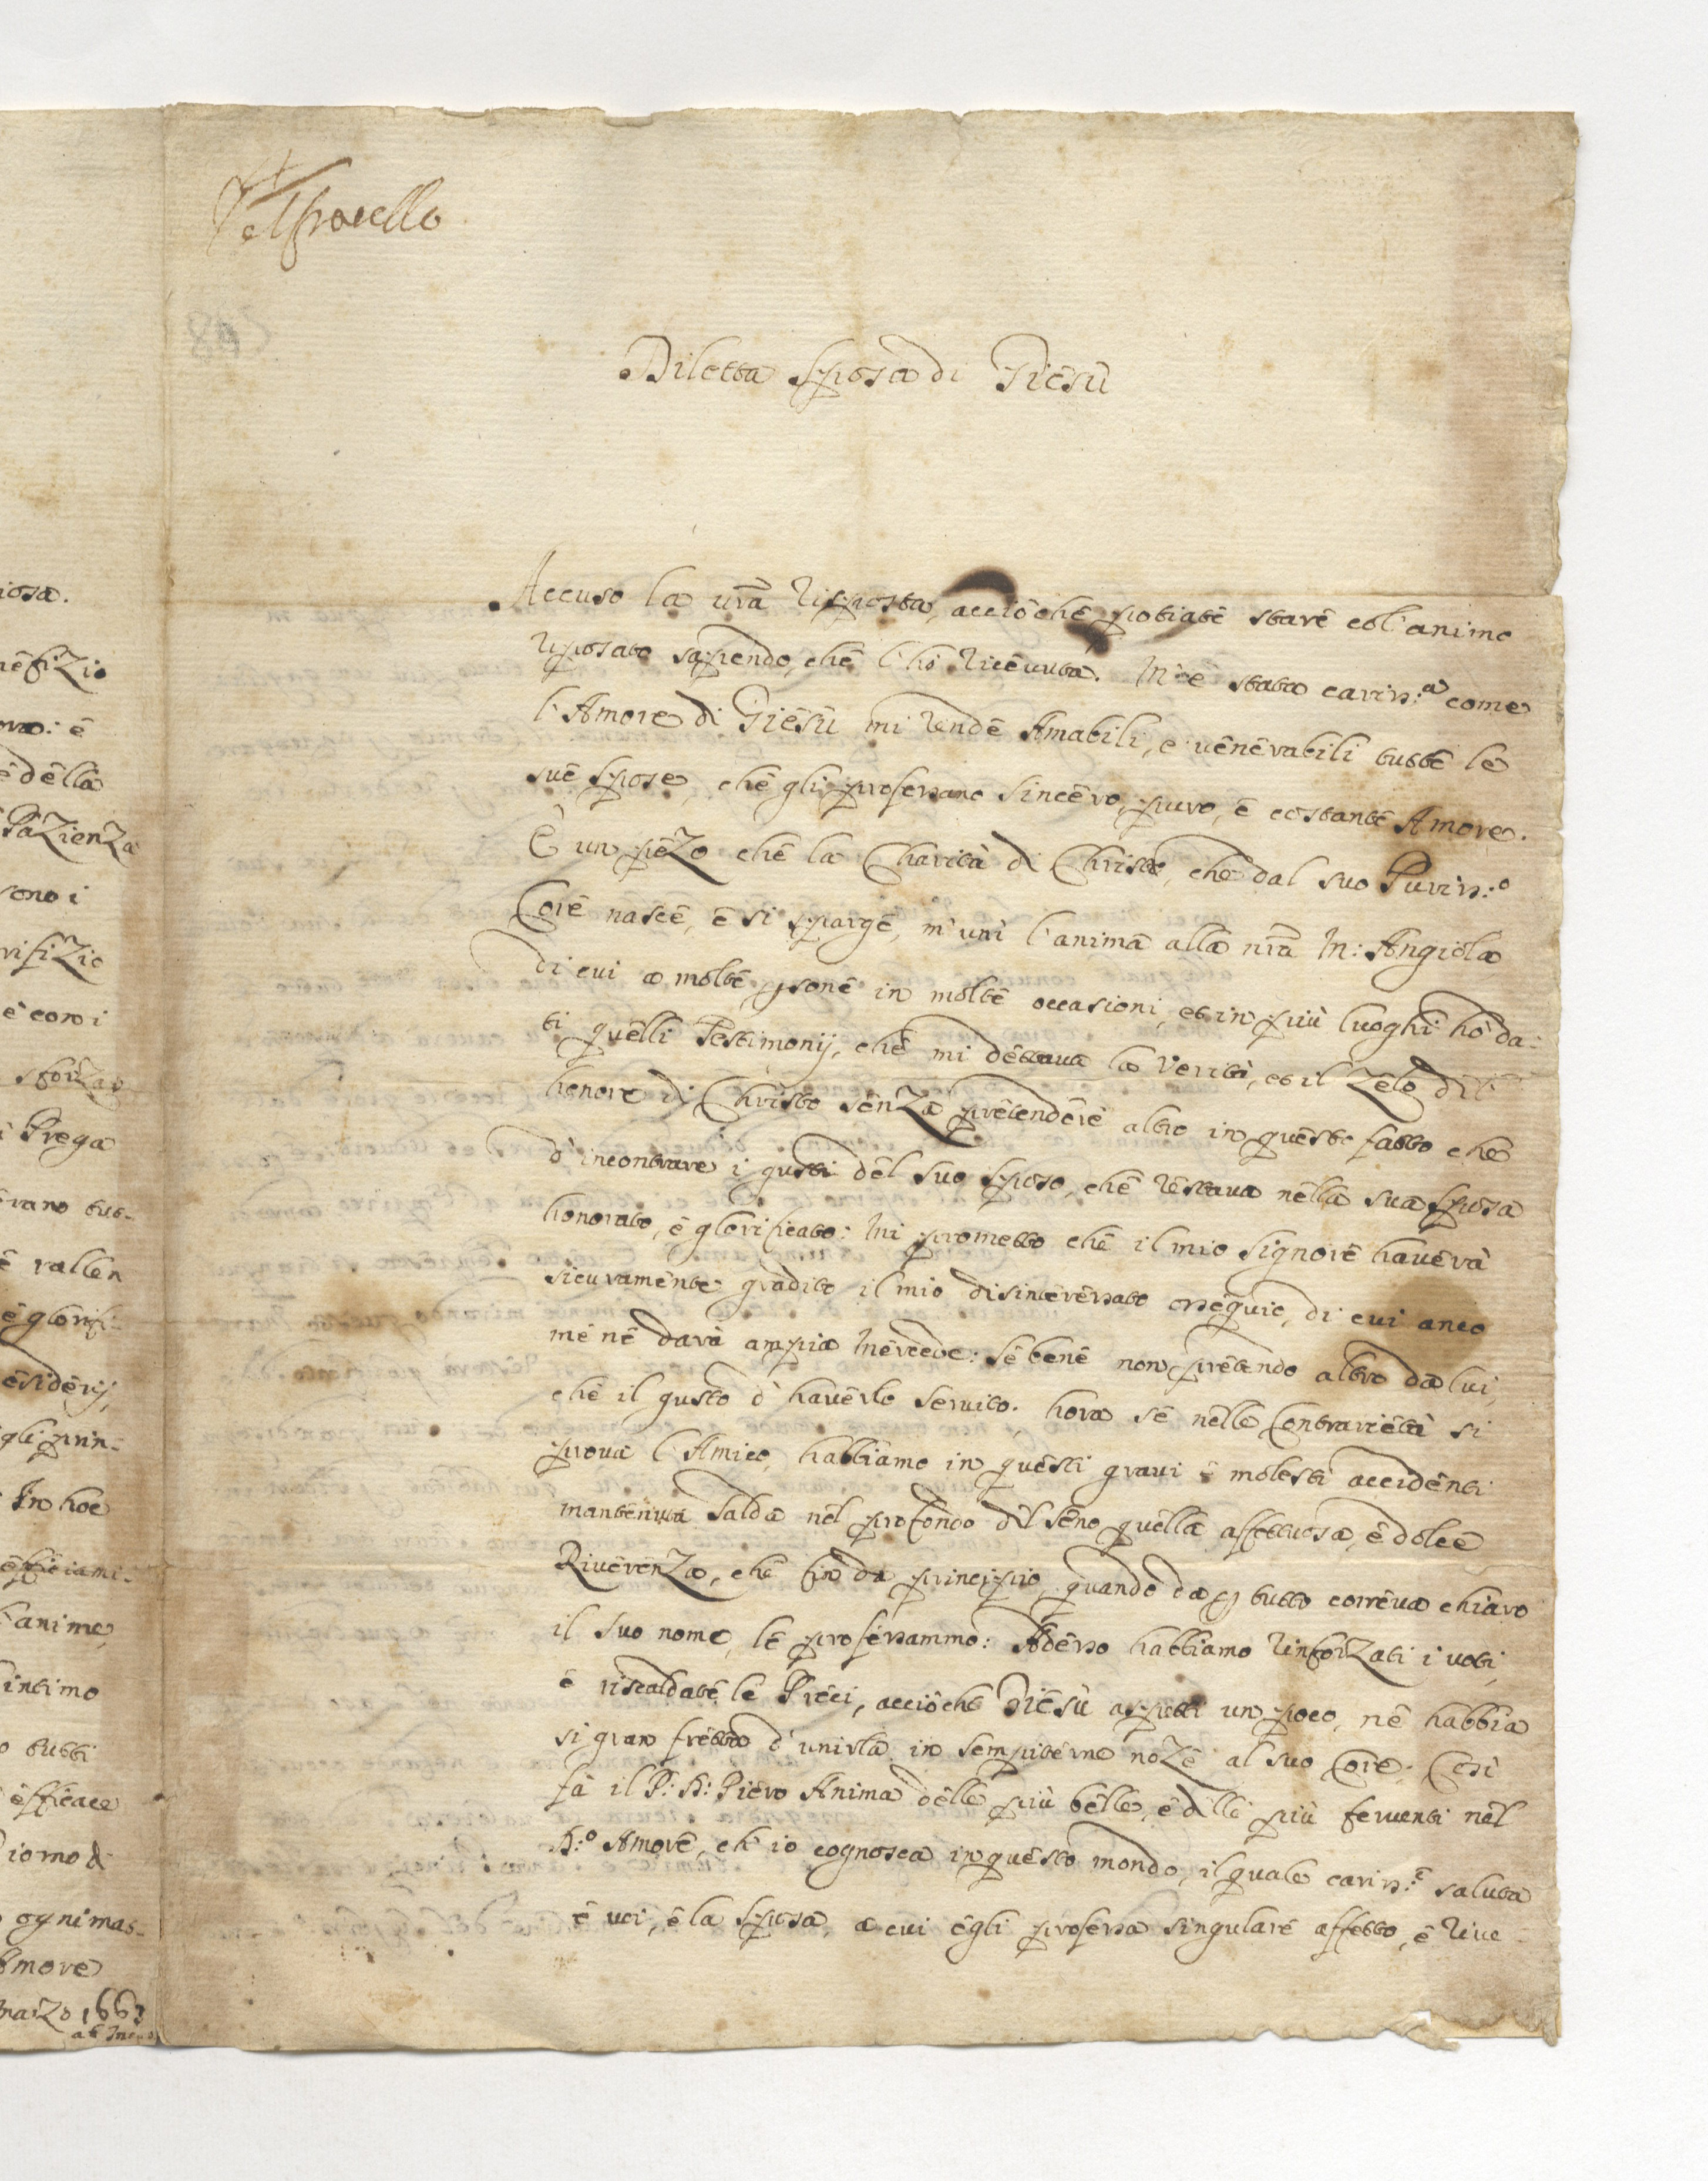 Diletta Sposa di Giesù
Accuso la vrã Risposta, acciòche potiate stare col'animo
riposato sapendo, che l'hò Ricevuta. M'è stata cariss:ª come
l'Amore di Giesù mi rende Amabili, e venerabili tutte le
sue Spose, che gli professano sincero, puro, e costante Amore.
È un pezo che la Charità di Christo, che dal suo Puriss:º
Core nasce, e si sparge, m'unì l'anima alla nrã M: Angiola
di cui a molte psone in molte occasioni, et in più luoghi hò da:
ti quelli Testimonij, che mi dettava la Verità, et il Zelo dell'
honore di Christo senza pretendere altro in questo fatto che
d'incontrare i gusti del suo Sposo, che restava nella sua Sposa
honorato, e glorificato: Mi prometto che il mio Signore haverà
sicuramente gradito il mio disinteressato ossequio, di cui anco
me ne darà ampia Mercede: se bene non pretendo altro da lui,
che il gusto d'haverlo servito. hora se nelle Contrarietà si
prova l'Amico, habbiamo in questi gravi e molesti accidenti
mantenuta salda nel profondo del seno quella affettuosa, e dolce
Riverenza, che fin da principio, quando da p tutto correva chiaro
il suo nome, le professammo: Adesso habbiamo rinforzati i voti,
e riscaldate le Preci, acciòche Giesù aspetti un poco, nè habbia
si gran fretta d'unirla in sempiterne noze al suo Core. Così
fà il P: D: Piero Anima delle più belle, e delle più ferventi nel
D:º Amore, ch'io cognosca in questo mondo, il quale cariss:ᵉ saluta
e voi, e la Sposa, a cui egli professa singulare affetto, e Rive
iosa.
nefizio
e della
Pazienza
sono i
rifizio
e con i
Prega
e glorifi-
esiderij,
gli prin-
In hoc
l'anime,
intimo
tutti
efficace
ogni mas-
Amore
Marzo 166